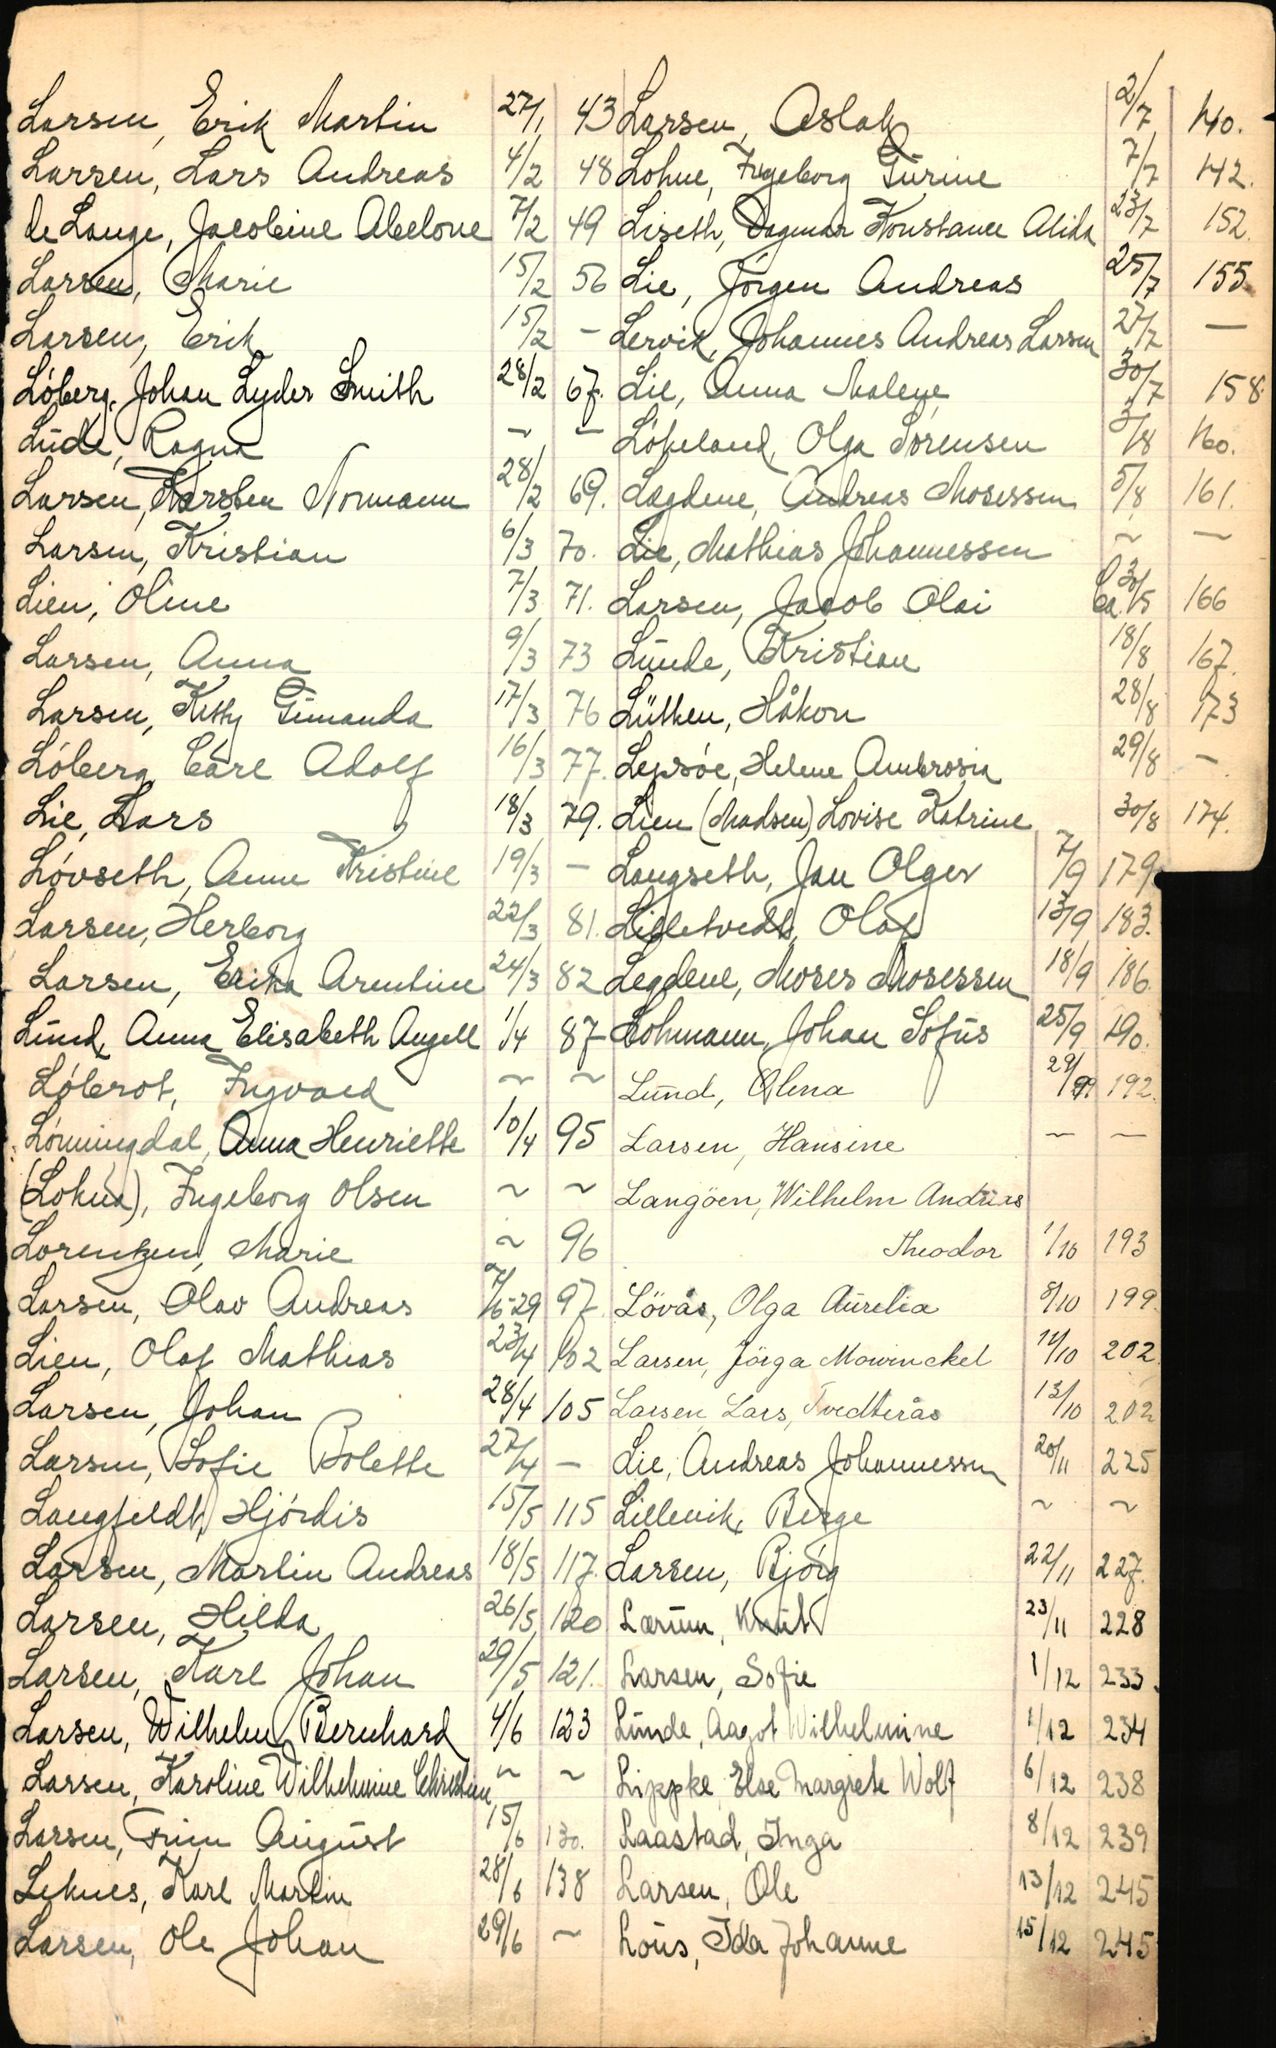 Larsen, Erik Martin 27/1 43
Larsen, Lars Andreas 4/2 48
de Lange, Jacobine Abelone 7/2 49
Larsen, Marie 15/2 56
Larsen, Erik 15/2 –
Löberg, Johan Lyder Smith 28/2 67.
Lude, Ragna ~ –
Larsen, Karsten Normann 28/2 69.
Larsen, Kristian 6/3 70.
Lien, Oline 7/3 71.
Larsen, Anna 9/3 73
Larsen, Kitty Gunanda 17/3 76
Löberg, Carl Adolf 16/3 77.
Lie, Lars 18/3 79.
Lövseth, Anne Kristine 19/3 –
Larsen, Herborg 22/3 81.
Larsen, Erika Arentine 24/3 82
Lund, Anna Elisabeth Angell 1/4 87
Löbrot, Ingvald ~ ~
Lönningdal, Anna Henriette 10/4 95
(Lokna), Ingeborg Olsen ~ ~
Lorentzen, Marie ~ 96
Larsen, Olav Andreas 7/5-29 97.
Lien, Olaf Mathias 23/4 102
Larsen, Johan 28/4 105
Larsen, Sofie Bolette 27/4 –
Langfeldt, Hjördis 15/5 115
Larsen, Martin Andreas 18/5 117.
Larsen, Hilda 26/5 120
Larsen, Karl Johan 29/5 121.
Larsen, Wilhelm Bernhard 4/6 123
Larsen, Karoline Wilhelmine Christine ~ ~
Larsen, Finn August 15/6 130.
Leknes, Karl Martin 28/6 138
Larsen, Ole Johan 29/6 ~
Larsen, Aslak 2/7 140.
Lohne, Ingeborg Turine 7/7 142.
Liseth, Dagmar Konstance Alida 23/7 152.
Lie, Jörgen Andreas 25/7 155.
Lervik, Johannes Andreas Larsen 27/7 –
Lie, Anna Malene 30/7 158.
Lökeland, Olga Sorensen 3/8 160.
Lægdene, Andreas Mosessen 5/8 161.
Lie, Mathias Johannessen ~ –
Larsen, Jacob Olai Ca. 30/5 166
Lunde, Kristian 18/8 167.
Lütken, Håkon 28/8 173
Lepsöe, Helene Ambrosia 29/8 –
Lien (Madsen) Lovise Katrine 30/8 174.
Langseth, Jan Olger 7/9 179
Lilletvedt, Olaf 13/9 183.
Legdene, Moses Mosessen 18/9 186.
Lohmann, Johan Sofus 25/9 190.
Lund, Olena 29/9 192.
Larsen, Hansine – –
Langöen, Wilhelm Andreas
Theodor 1/10 193
Lövås, Olga Aurelia 8/10 199.
Larsen, Jörga Mowinckel 12/10 202
Larsen, Lars, Tvedterås 13/10 202
Lie, Andreas Johannessen 20/11 225
Lillevik, Berge ~ ~
Larsen, Björg 22/11 227.
Lærum, Knut 23/11 228
Larsen, Sofie 1/12 233.
Lunde, Aagot Wilhelmine 1/12 234
Lippke, Else Margrete Wolf 6/12 238
Laastad, Inga 8/12 239
Larsen, Ole 13/12 245
Lous, Ida Johanne 15/12 245